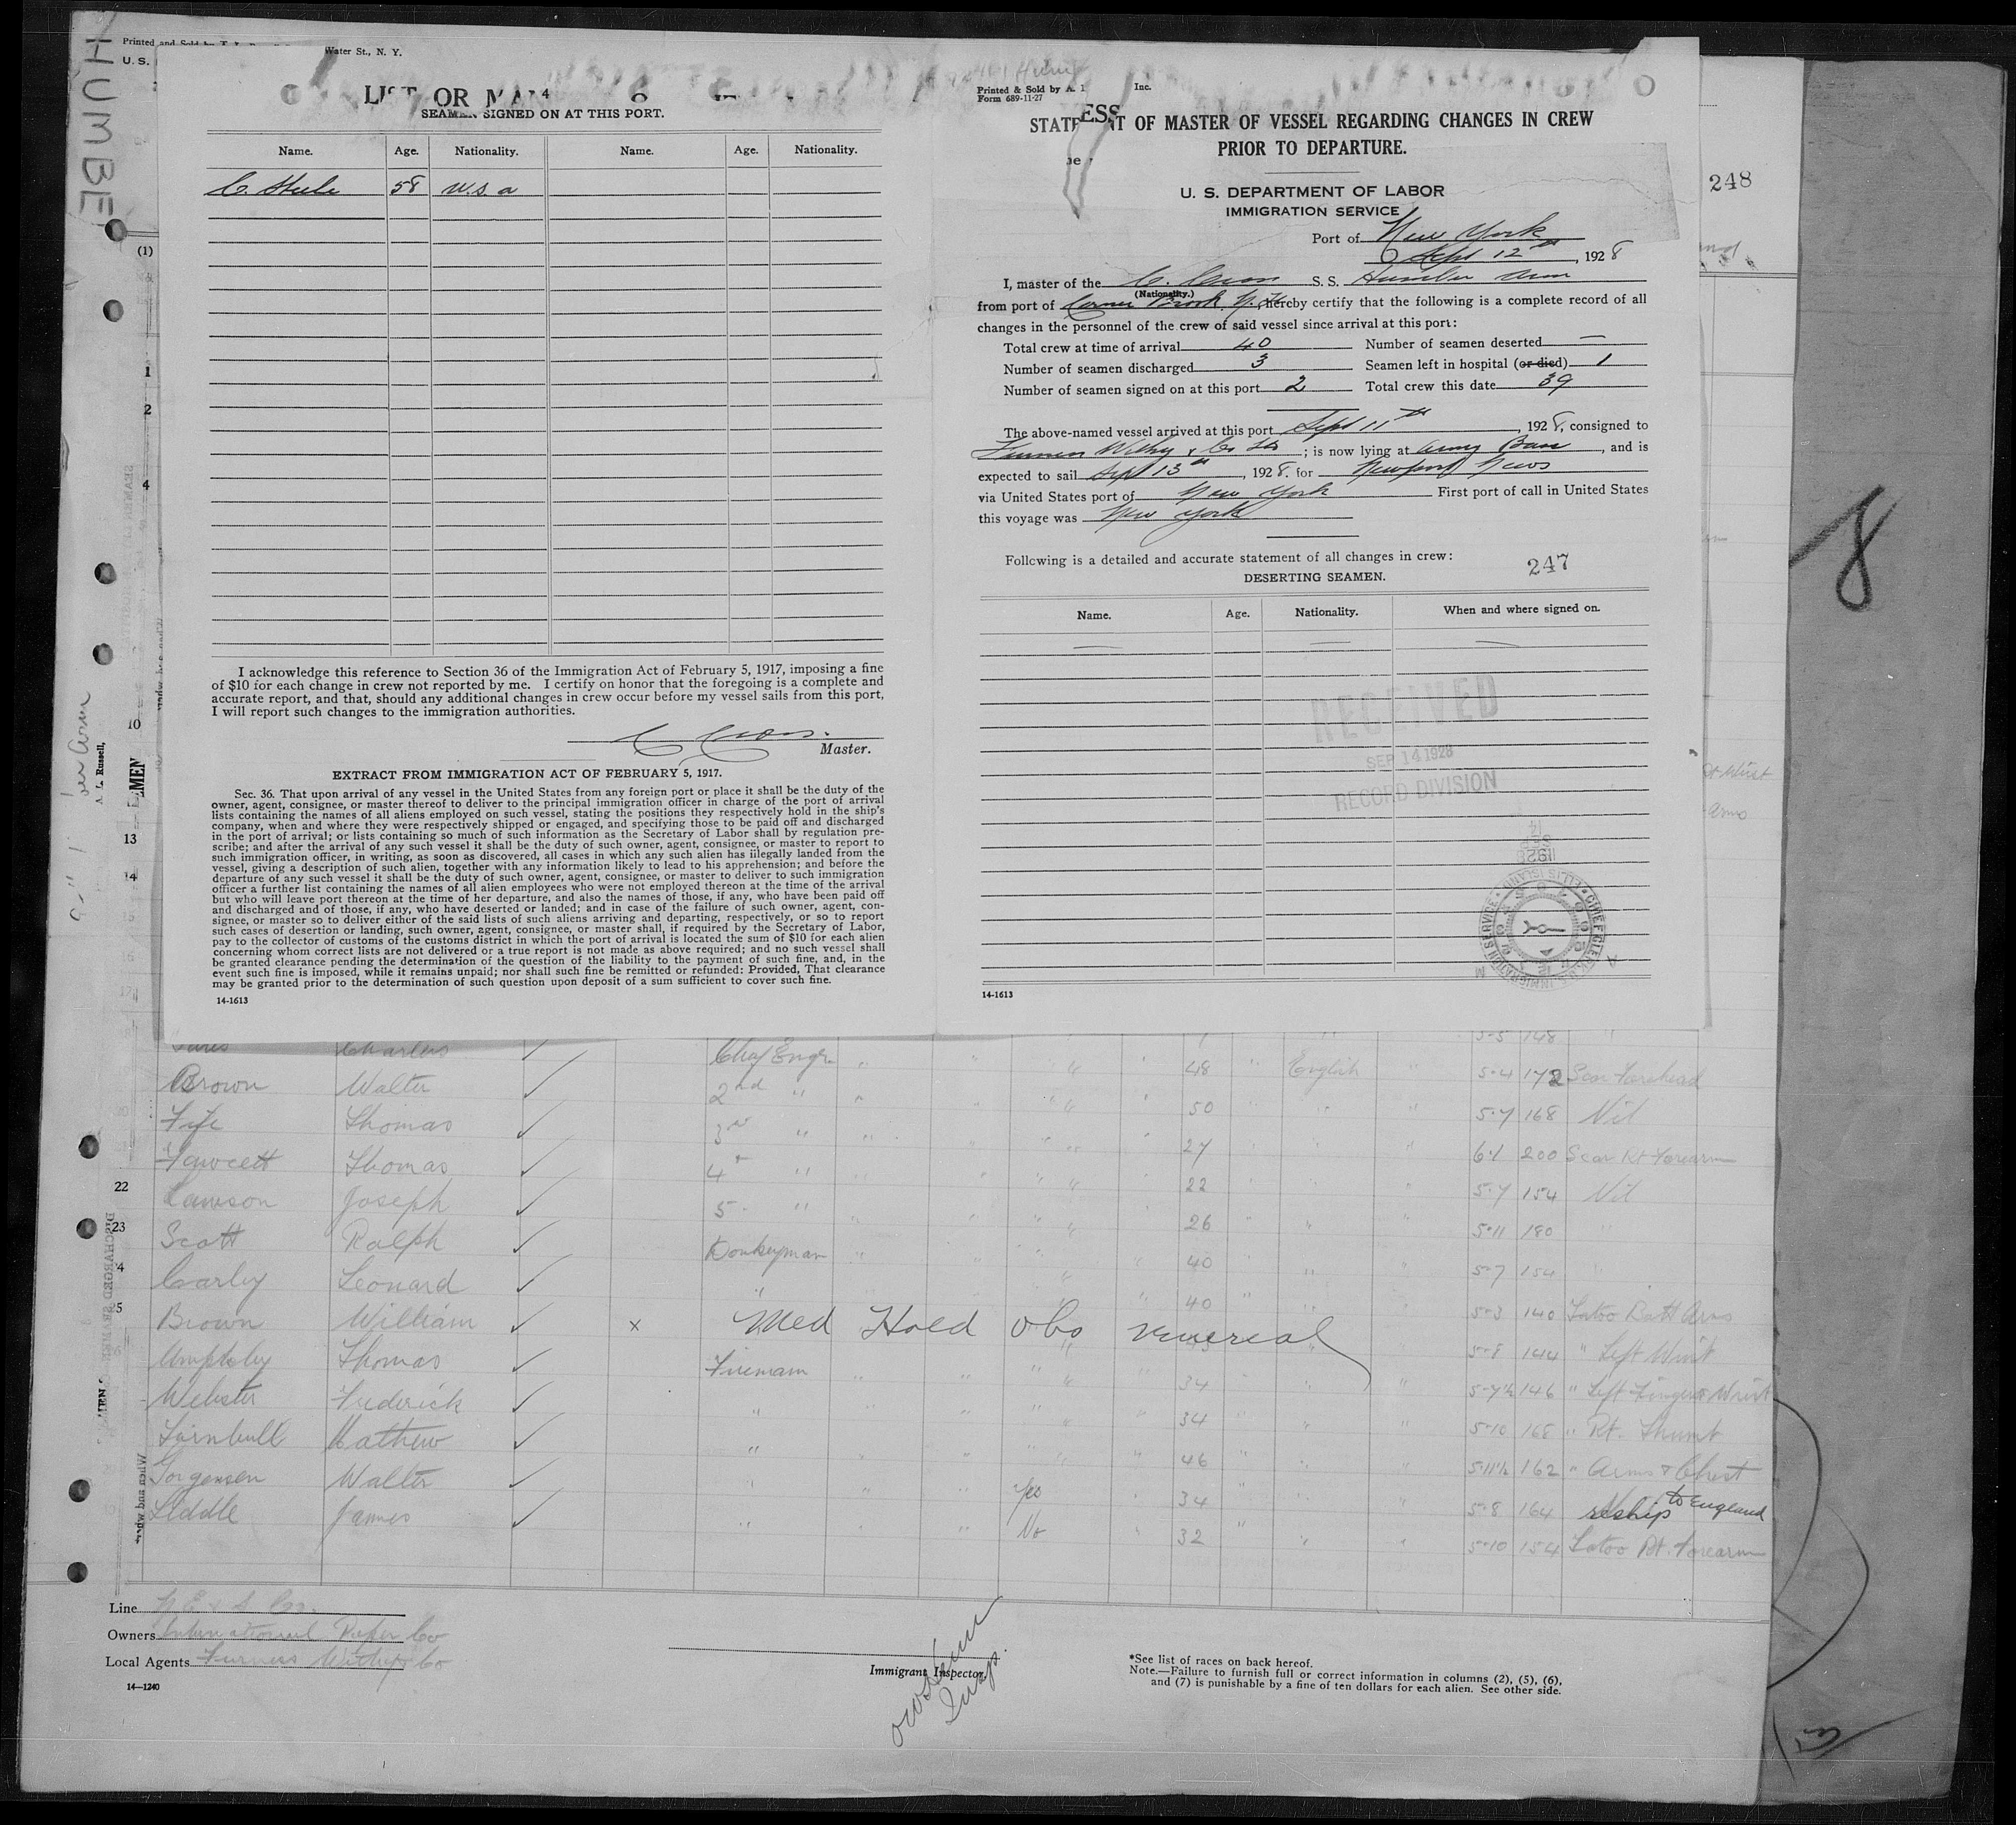 HUMBE
Printed and Sold by
Water St., N. Y.
U. S.
LIST OR MA
SEAMEN SIGNED ON AT THIS PORT.
Name. Age. Nationality. Name. Age. Nationality.
C. Steele 58 U.S.A
I acknowledge this reference to Section 36 of the Immigration Act of February 5, 1917, imposing a fine
of $10 for each change in crew not reported by me. I certify on honor that the foregoing is a complete and
accurate report, and that, should any additional changes in crew occur before my vessel sails from this port,
I will report such changes to the immigration authorities.
Master.
EXTRACT FROM IMMIGRATION ACT OF FEBRUARY 5, 1917.
Sec. 36. That upon arrival of any vessel in the United States from any foreign port or place it shall be the duty of the
owner, agent, consignee, or master thereof to deliver to the principal immigration officer in charge of the port of arrival
lists containing the names of all aliens employed on such vessel, stating the positions they respectively hold in the ship's
company, when and where they were respectively shipped or engaged, and specifying those to be paid off and discharged
in the port of arrival; or lists containing so much of such information as the Secretary of Labor shall by regulation pre-
scribe; and after the arrival of any such vessel it shall be the duty of such owner, agent, consignee, or master to report to
such immigration officer, in writing, as soon as discovered, all cases in which any such alien has illegally landed from the
vessel, giving a description of such alien, together with any information likely to lead to his apprehension; and before the
departure of any such vessel it shall be the duty of such owner, agent, consignee, or master to deliver to such immigration
officer a further list containing the names of all alien employees who were not employed thereon at the time of the arrival
but who will leave port thereon at the time of her departure, and also the names of those, if any, who have been paid off
and discharged and of those, if any, who have deserted or landed; and in case of the failure of such owner, agent, con-
signee, or master so to deliver either of the said lists of such aliens arriving and departing, respectively, or so to report
such cases of desertion or landing, such owner, agent, consignee, or master shall, if required by the Secretary of Labor,
pay to the collector of customs of the customs district in which the port of arrival is located the sum of $10 for each alien
concerning whom correct lists are not delivered or a true report is not made as above required; and no such vessel shall
be granted clearance pending the determination of the question of the liability to the payment of such fine, and, in the
event such fine is imposed, while it remains unpaid; nor shall such fine be remitted or refunded: Provided, That clearance
may be granted prior to the determination of such question upon deposit of a sum sufficient to cover such fine.
14-1613
Printed & Sold by A. 1 Inc.
Form 689-11-27
ESS
STATE NT OF MASTER OF VESSEL REGARDING CHANGES IN CREW
PRIOR TO DEPARTURE.
U. S. DEPARTMENT OF LABOR
IMMIGRATION SERVICE
Port of New York
Sept 12th, 1928
I, master of the S. S. Humber Arm
(Nationality.)
from port of Corner Brook, N. F., hereby certify that the following is a complete record of all
changes in the personnel of the crew of said vessel since arrival at this port:
Total crew at time of arrival 40 Number of seamen deserted —
Number of seamen discharged 3 Seamen left in hospital (or died) 1
Number of seamen signed on at this port 2 Total crew this date 39
The above-named vessel arrived at this port Sept 11th, 1928, consigned to
Furness Withy & Co Ltd; is now lying at Army Base, and is
expected to sail Sept 13th, 1928 for Newport News
via United States port of New York First port of call in United States
this voyage was New York
Following is a detailed and accurate statement of all changes in crew:
247
DESERTING SEAMEN.
Name. Age. Nationality. When and where signed on.
RECEIVED
SEP 14 1928
RECORD DIVISION
14-1613
248
8
(1)
1
2
4
10
A. L. Russell,
EMEN
13
14
16
17
Charles ✓ Chief Engr. 5-5 148
Brown Walter ✓ 2nd " 48 English 5-4 172 Scar Forehead
Fife Thomas ✓ 3rd " 50 5-7 168 Nil
Fawcett Thomas ✓ 4th " 27 6-1 200 Scar Rt Forearm
22 Lawson Joseph ✓ 5 " 22 5-7 154 Nil
23 Scott Ralph ✓ Donkeyman 26 5-11 180 "
4 Carley Leonard ✓ " 40 5-7 154 "
25 Brown William ✓ x Med Hold obs venereal 40 5-3 140 Tatoo Both Arms
Thomas ✓ Fireman 5-8 144 " Left Wrist
Webster Frederick ✓ " 34 5-7½ 146 " Left Finger & Wrist
Turnbull Mathew ✓ " 34 5-10 168 " Rt. Thumb
Jorgensen Walter ✓ " 46 5-11½ 162 " Arms & Chest
Liddle James ✓ " Yes 34 5-8 164 reship to England
No 32 5-10 154 Tatoo Rt. Forearm
Line
Owners International Paper Co
Local Agents Furness Withy & Co
14—1240
Immigrant Inspector.
Insp.
*See list of races on back hereof.
Note.—Failure to furnish full or correct information in columns (2), (5), (6),
and (7) is punishable by a fine of ten dollars for each alien. See other side.